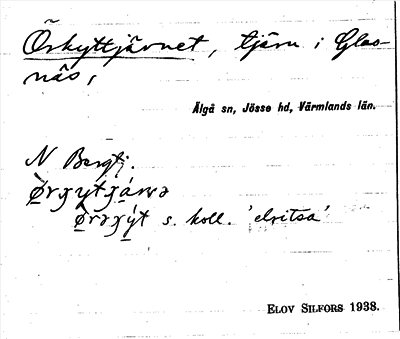 Örkyttjävnet, tjärn i Glas-
näs,
Älgå sn, Jösse hd, Värmlands län.
N Bergtj.
s. koll. 'elritsa'
ELOV SILFORS 1938.